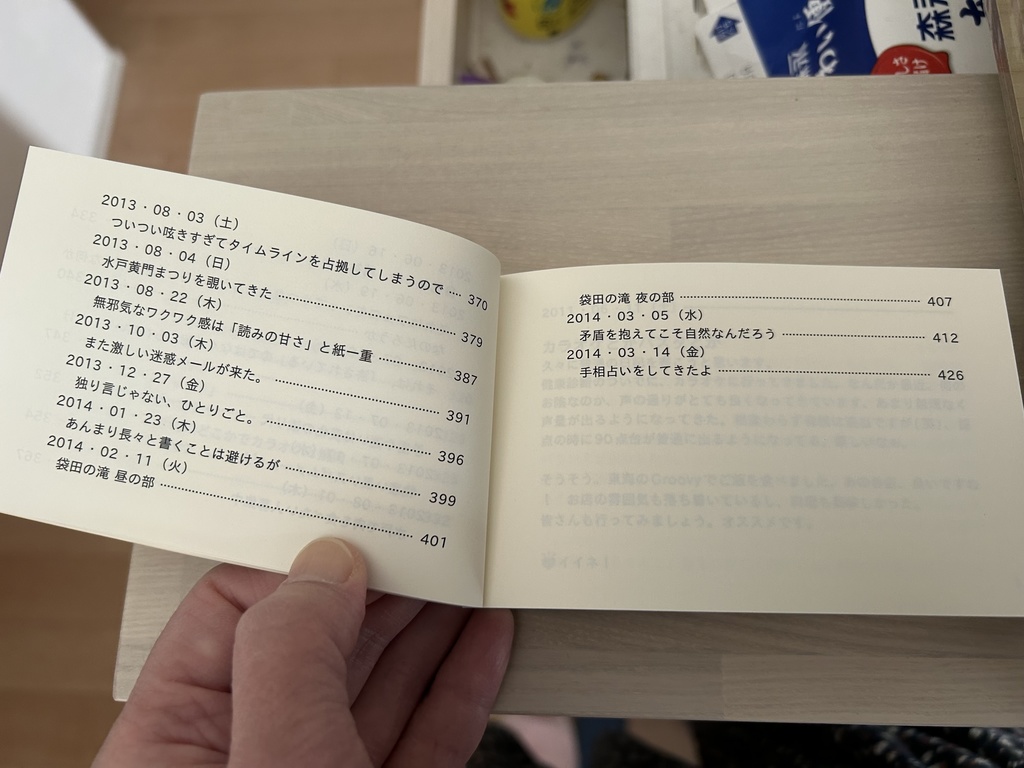 2013・08・03（土）
ついつい呟きすぎてタイムラインを占拠してしまうので ···· 370
2013・08・04（日）
水戸黄門まつりを覗いてきた ···· 379
2013・08・22（木）
無邪気なワクワク感は「読みの甘さ」と紙一重 ···· 387
2013・10・03（木）
また激しい迷惑メールが来た。 ···· 391
2013・12・27（金）
独り言じゃない、ひとりごと。 ···· 396
2014・01・23（木）
あんまり長々と書くことは避けるが ···· 399
2014・02・11（火）
袋田の滝 昼の部 ···· 401
袋田の滝 夜の部 ···· 407
2014・03・05（水）
矛盾を抱えてこそ自然なんだろう ···· 412
2014・03・14（金）
手相占いをしてきたよ ···· 426